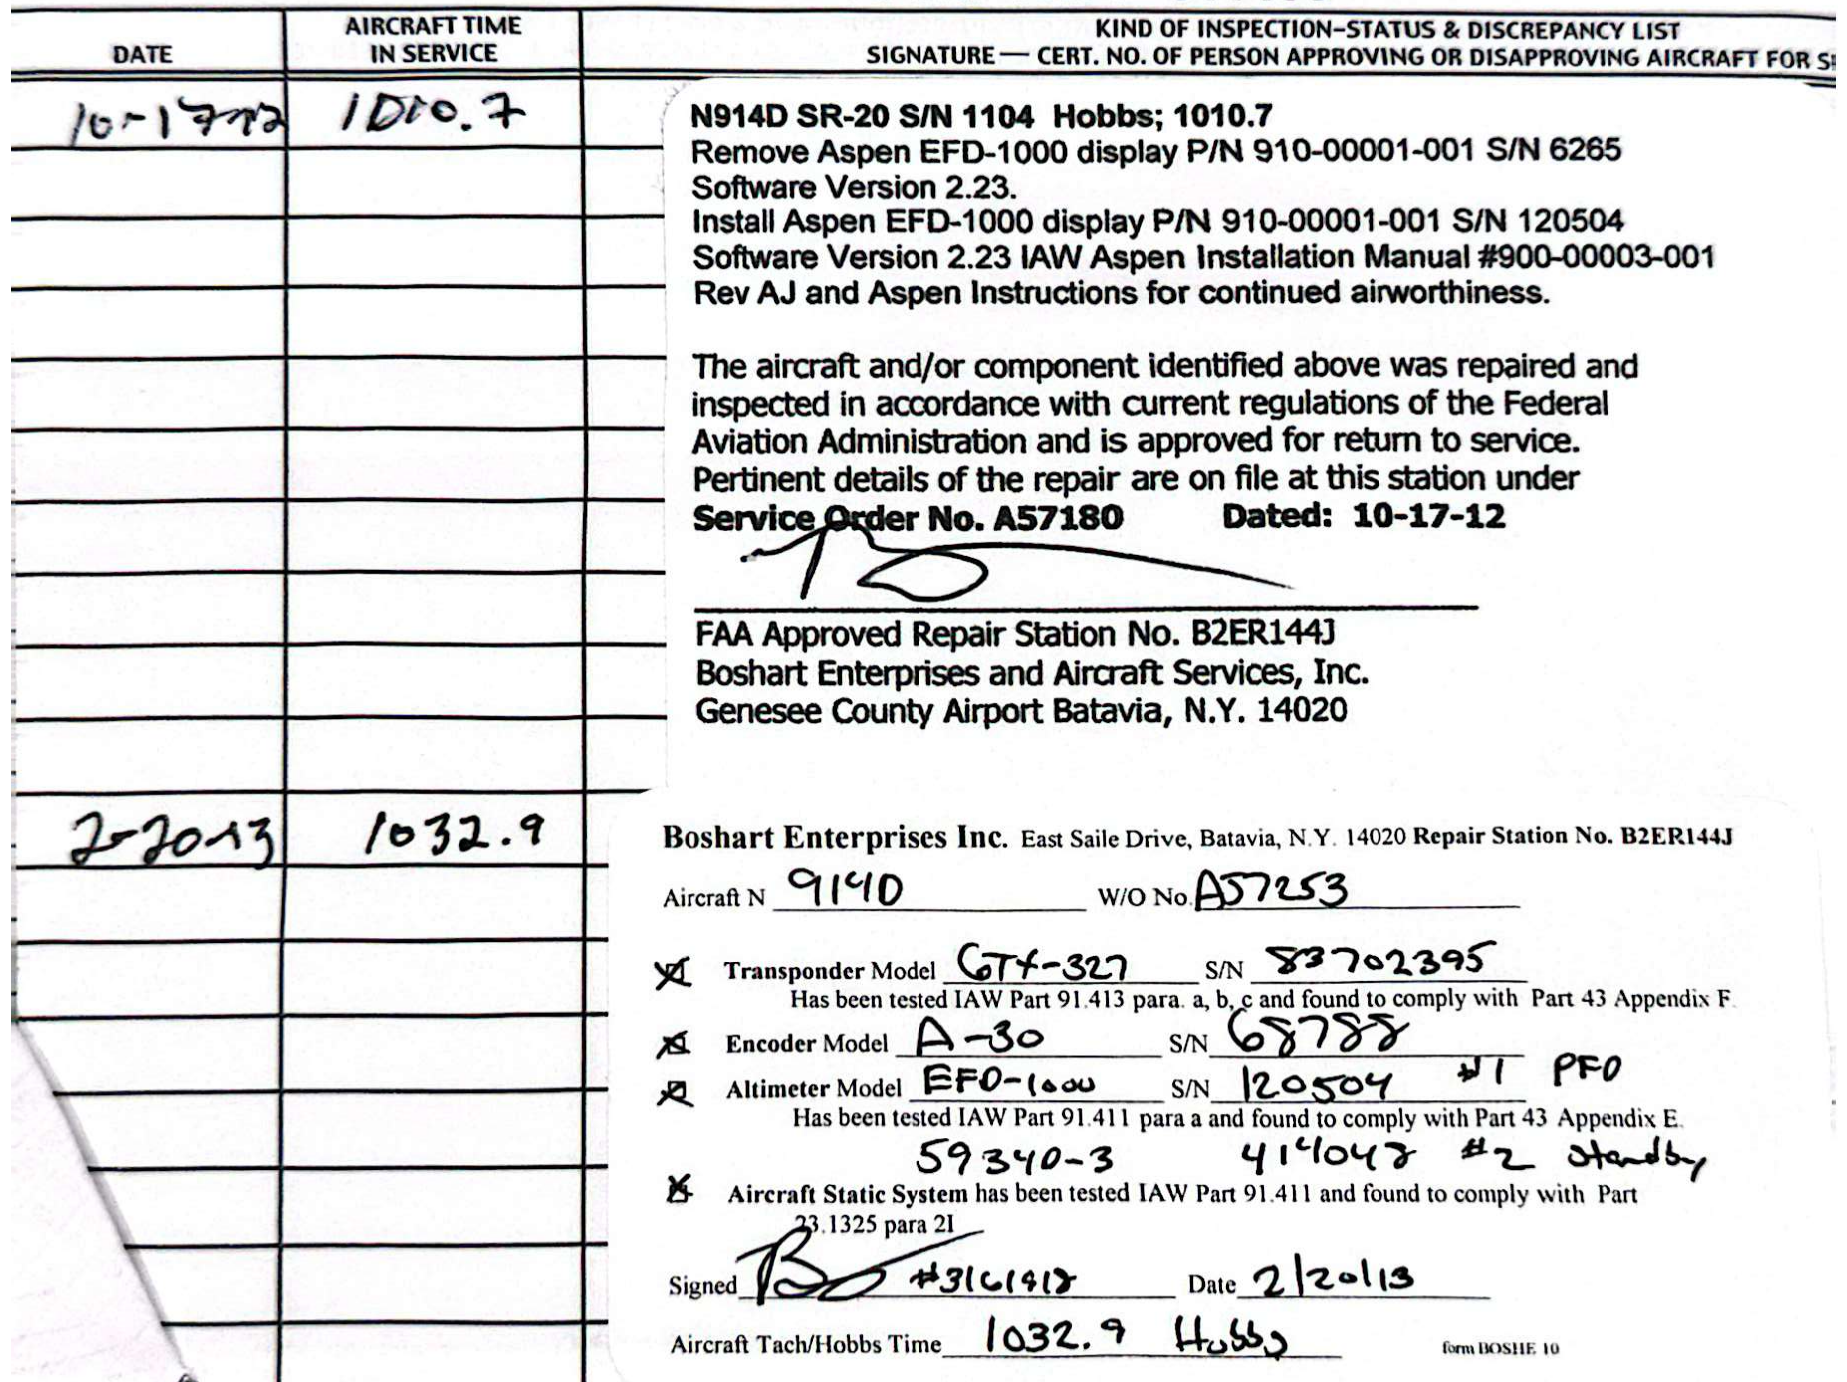 DATE
AIRCRAFT TIME
IN SERVICE
KIND OF INSPECTION–STATUS & DISCREPANCY LIST
SIGNATURE — CERT. NO. OF PERSON APPROVING OR DISAPPROVING AIRCRAFT FOR
10-17-12 1010.7
N914D SR-20 S/N 1104 Hobbs; 1010.7
Remove Aspen EFD-1000 display P/N 910-00001-001 S/N 6265
Software Version 2.23.
Install Aspen EFD-1000 display P/N 910-00001-001 S/N 120504
Software Version 2.23 IAW Aspen Installation Manual #900-00003-001
Rev AJ and Aspen Instructions for continued airworthiness.
The aircraft and/or component identified above was repaired and
inspected in accordance with current regulations of the Federal
Aviation Administration and is approved for return to service.
Pertinent details of the repair are on file at this station under
Service Order No. A57180 Dated: 10-17-12
FAA Approved Repair Station No. B2ER144J
Boshart Enterprises and Aircraft Services, Inc.
Genesee County Airport Batavia, N.Y. 14020
2-20-13 1032.9
Boshart Enterprises Inc. East Saile Drive, Batavia, N.Y. 14020 Repair Station No. B2ER144J
Aircraft N 914D W/O No. A57253
Transponder Model GTX-327 S/N 83702395
Has been tested IAW Part 91.413 para. a, b, c and found to comply with Part 43 Appendix F.
Encoder Model A-30 S/N 68788
Altimeter Model EFD-1000 S/N 120504 #1 PFD
Has been tested IAW Part 91.411 para a and found to comply with Part 43 Appendix E.
59340-3 414048 #2 standby
Aircraft Static System has been tested IAW Part 91.411 and found to comply with Part
23.1325 para 2I
Signed Date 2/20/13
Aircraft Tach/Hobbs Time 1032.9 Hobbs
form BOSHE 10